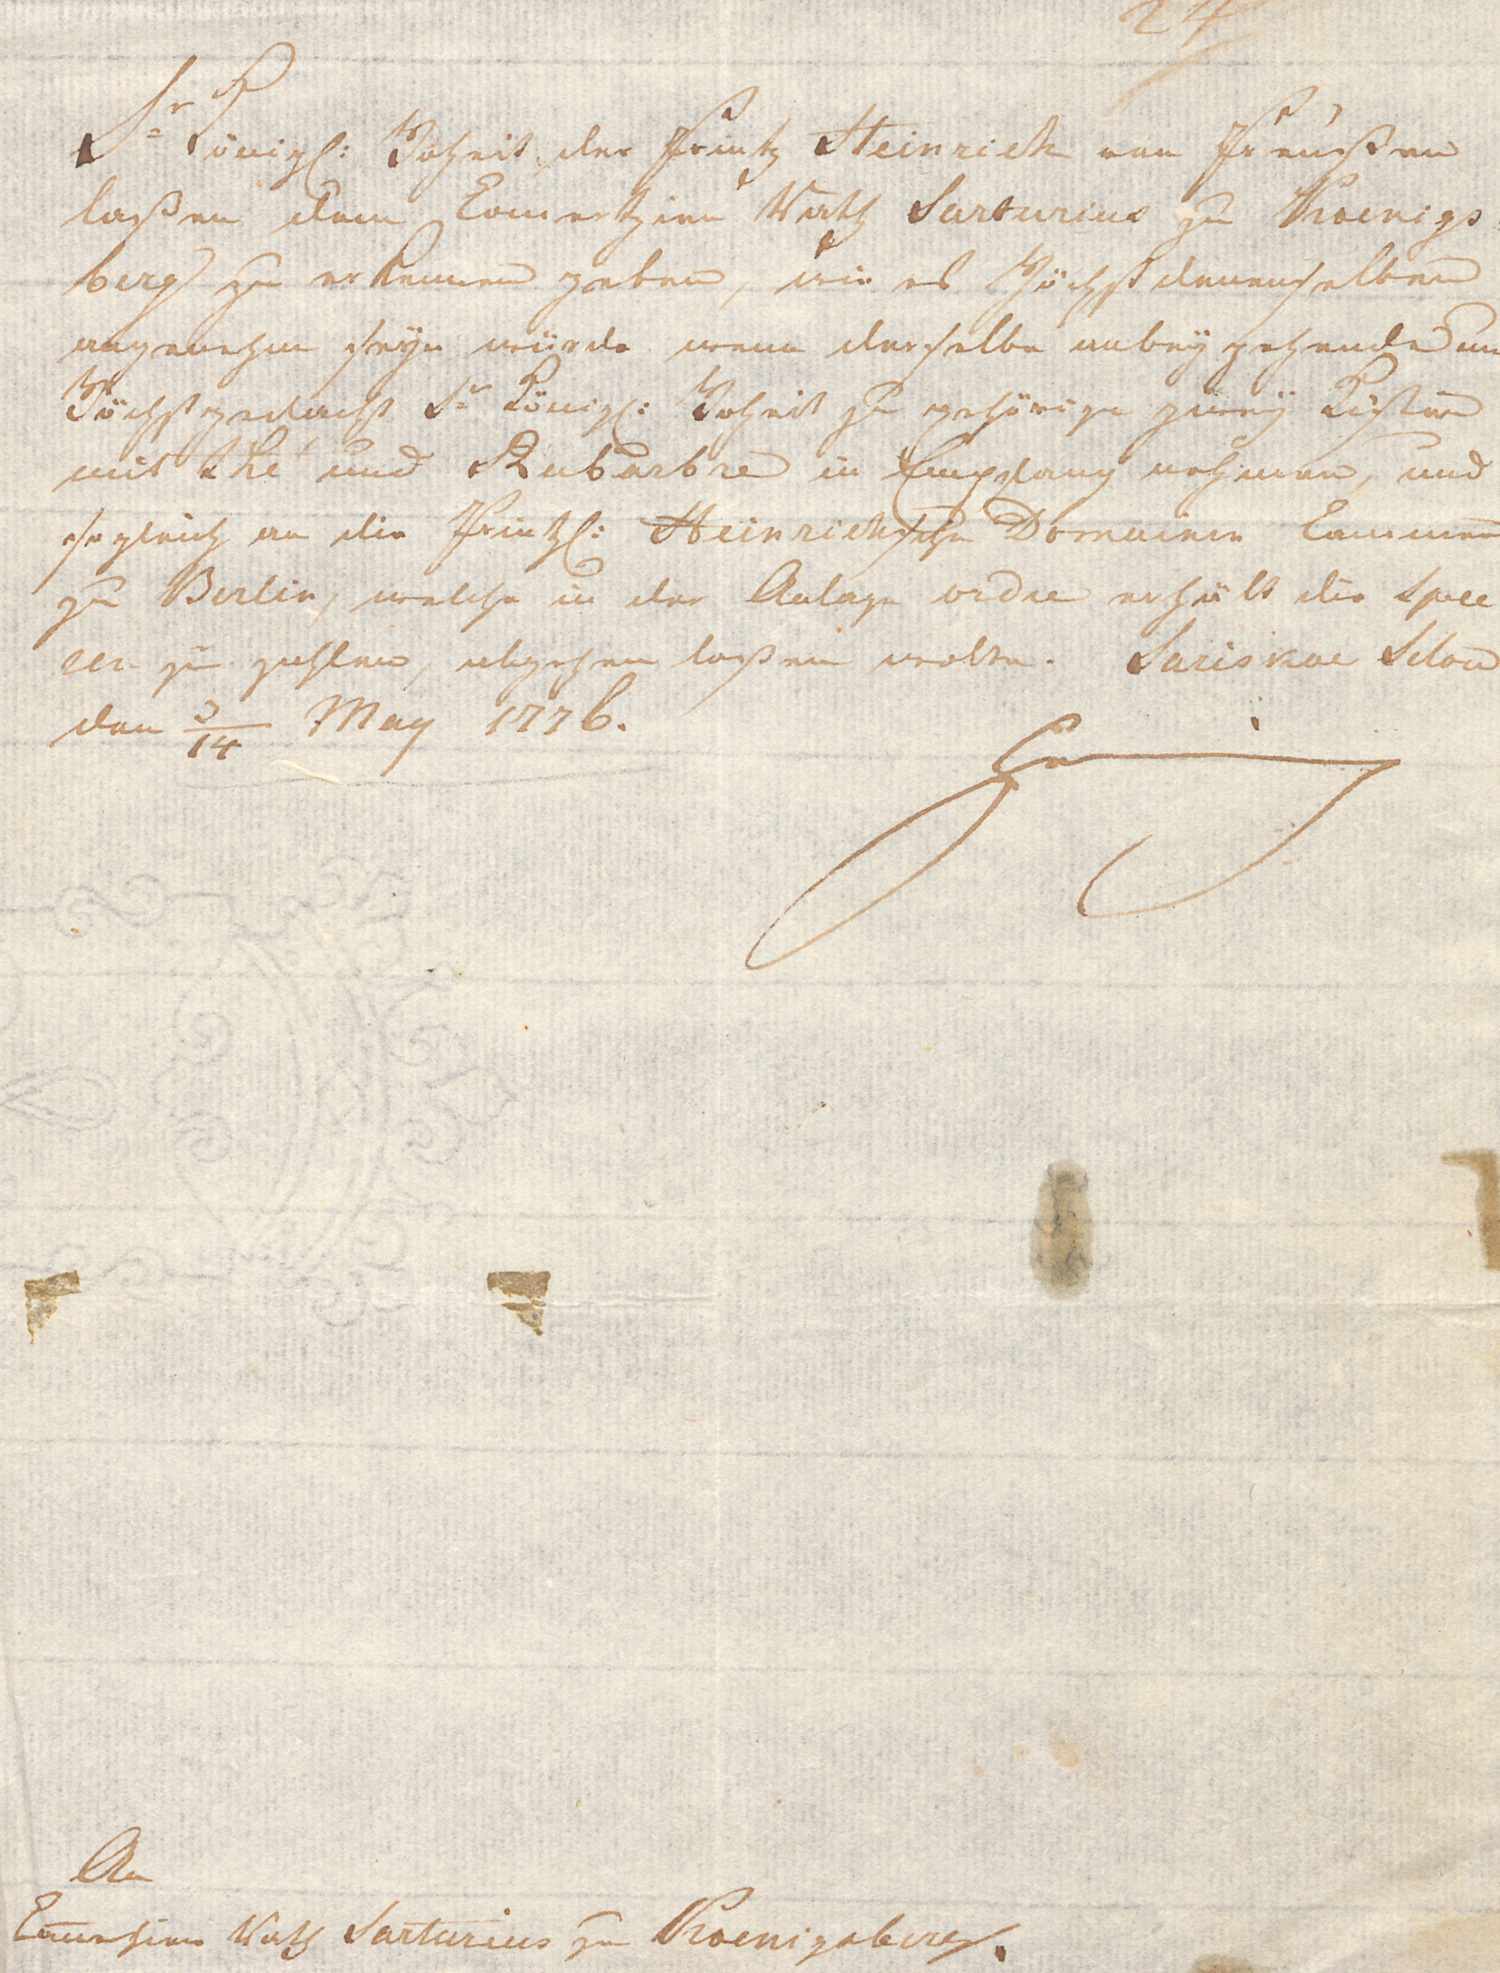 24
Sr Königl: Hoheit der Printz Heinrich von Preüßen
laßen dem Comertzien Rath Sarturius zu Koenigs
berg zu erkennen geben, wie es Höchstdenenselben
angenehm seyn würde wenn derselbe anbeÿ gehende an
Höchstgedacht Sr Königl: Hoheit zu gehörige zweÿ Kisten
mit thé und Rubarbre in Empfang nehmen, und
sogleich an die Printzl: Heinrichsche Domainen Cammer
zu Berlin, welche in der Anlage ordre erhält die Spee
sen zu zahlen, abgehen laßen wolte. Sariskoe Selon
den 3/14 May 1776.
An
Comertzien Rath Sarturius zu Koenigsberg.